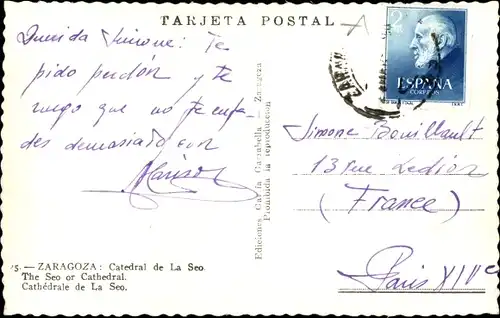 TARJETA POSTAL
Querida Simone: Te
pido perdón y te
ruego que no te enfa-
des demasiado con
Marisol
25. — ZARAGOZA: Catedral de La Seo.
The Seo or Cathedral.
Cathédrale de La Seo.
Ediciones García Garrabella — Zaragoza
Prohibida la reproducción
2
ESPAÑA
CORREOS
Simone Bouillault
13 rue Ledion
(France)
Paris XIVe